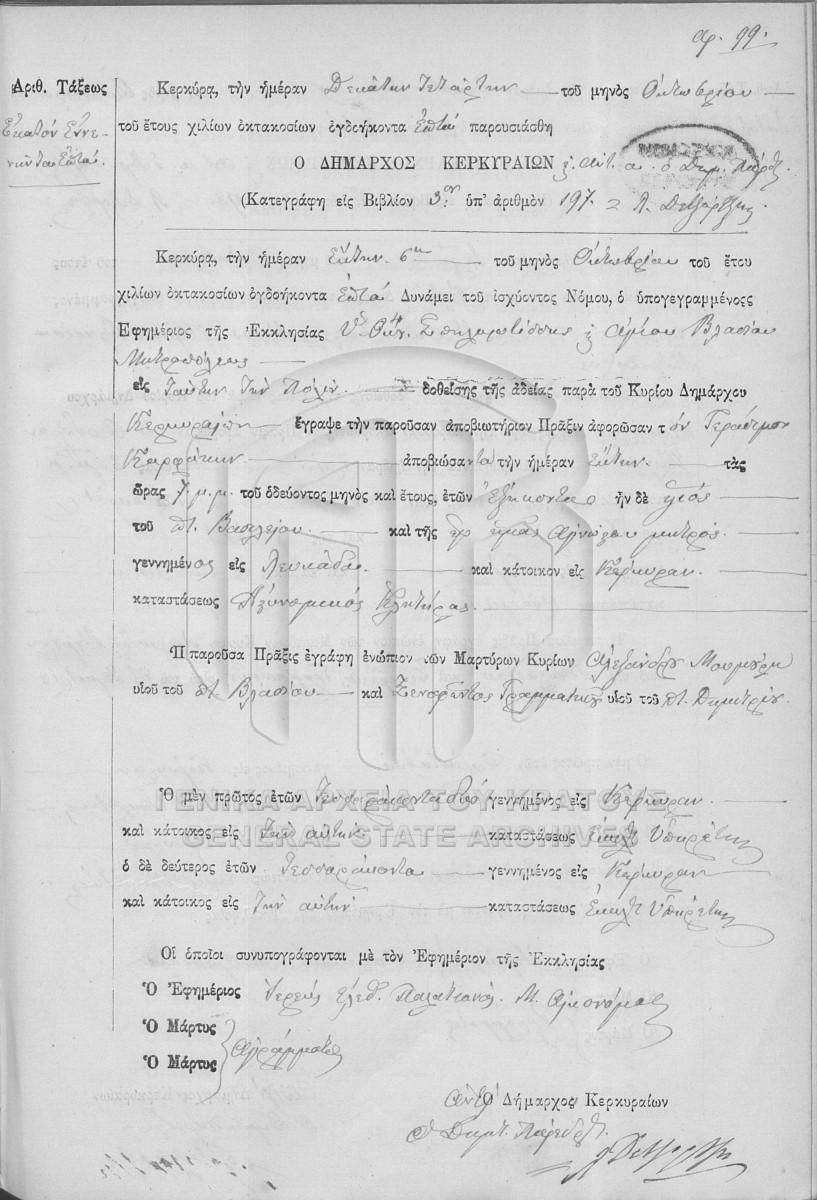 αρ. 99.
Ἀριθ. Τάξεως
Ἑκατόν Ἐννε-
νῆντα Ἑπτά.
Κερκύρα, τὴν ἡμέραν Δεκάτην Τετάρτην τοῦ μηνὸς Ὀκτωβρίου
τοῦ ἔτους χιλίων ὀκτακοσίων ὀγδοήκοντα ἑπτά παρουσιάσθη
Ο ΔΗΜΑΡΧΟΣ ΚΕΡΚΥΡΑΙΩΝ
(Κατεγράφη εἰς Βιβλίον 3ον ὑπ' ἀριθμὸν 197.
Κερκύρα, τὴν ἡμέραν Ἕκτην 6ην τοῦ μηνὸς Ὀκτωβρίου τοῦ ἔτου
χιλίων ὀκτακοσίων ὀγδοήκοντα ἑπτά Δυνάμει τοῦ ἰσχύοντος Νόμου, ὁ ὑπογεγραμμένοςς
Ἐφημέριος τῆς Ἐκκλησίας Σπηλαιωτίσσης Ἁγίου Βλασίου
Μητροπόλεως
εἰς ταύτην τὴν Πόλιν δοθείσης τῆς ἀδείας παρὰ τοῦ Κυρίου Δημάρχου
Κερκυραίων ἔγραψε τὴν παροῦσαν ἀποβιωτήριον Πρᾶξιν ἀφορῶσαν τ όν Γεράσιμον
ἀποβιώσα ντα τὴν ἡμέραν Ἕκτην τὰς
ὥρας 7 μ.μ. τοῦ ὁδεύοντος μηνὸς καὶ ἔτους, ἐτῶν Ἑξήκοντα ἦν δὲ υἱός
τοῦ π. Βασιλείου καὶ τῆς ἐφ' ἡμᾶς ἀγνώστου μητρός
γεννημένος εἰς Λευκάδα καὶ κάτοικον εἰς Κέρκυραν.
καταστάσεως Ἀστυνομικός Κλητήρας.
Ἡ παροῦσα Πρᾶξις ἐγράφη ἐνώπιον τῶν Μαρτύρων Κυρίων Ἀλεξάνδρου
υἱοῦ τοῦ π. Βλασίου καὶ Ξενοφῶντος Γραμματικοῦ υἱοῦ τοῦ π. Δημητρίου.
Ὁ μὲν πρῶτος ἐτῶν Τεσσαρακονταδύο γεννημένος εἰς Κέρκυραν
καὶ κάτοικος εἰς τὴν αὐτήν καταστάσεως Ἐκκλ. Ὑπηρέτης
ὁ δὲ δεύτερος ἐτῶν Τεσσαράκοντα γεννημένος εἰς Κέρκυραν
καὶ κάτοικος εἰς τὴν αὐτήν καταστάσεως Ἐκκλ. Ὑπηρέτης
Οἱ ὁποῖοι συνυπογράφονται μὲ τὸν Ἐφημέριον τῆς Ἐκκλησίας
Ὁ Ἐφημέριος Ἱερεύς Ἐλευθ.
Ὁ Μάρτυς
Ὁ Μάρτυς
ἀγράμματοι
Ὁ Δήμαρχος Κερκυραίων
ὁ Δημ. Πάρεδρ.
ΓΕΝΙΚΑ ΑΡΧΕΙΑ ΤΟΥ ΚΡΑΤΟΥΣ
GENERAL STATE ARCHIVES